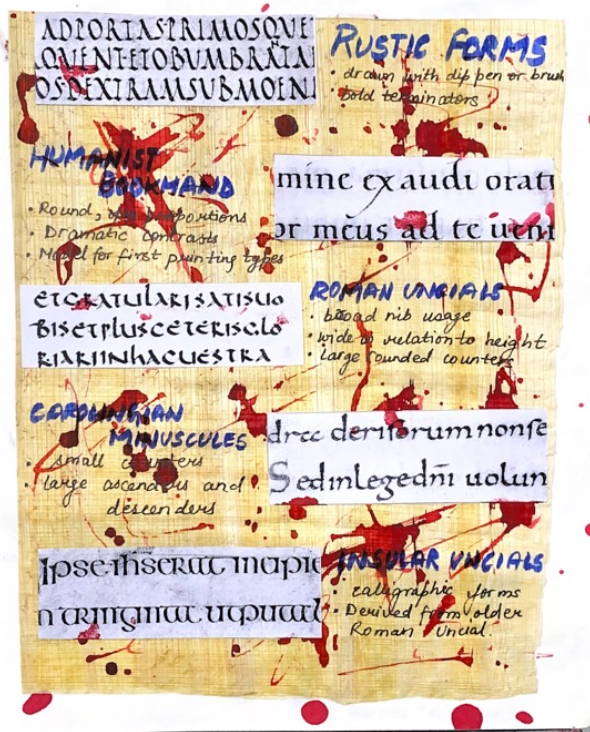 ADPORTAS·PRIMOSQVE
RUSTIC FORMS
LOQVENT·ETOBVMBRATA
• drawn with dip pen or brush
OS·DEXTRAMSVBMOENI
• bold terminators
HUMANIST
BOOKHAND
mine exaudi orati
• Round, proportions
or meus ad te ueni
• Dramatic contrasts
• Model for first printing types
ETGRATULARISATISUO
ROMAN UNCIALS
BISETPLUSCETERISGLO
• broad nib usage
• wide in relation to height
RIARIINHACUESTRA
• large rounded counters
CAROLINGIAN
MINUSCULES
derisorum nonse
• small counters
Sedinlegedni uolun
• large ascenders and
descenders
INSULAR UNCIALS
• caligraphic forms
• Derived from older
Roman Uncial.